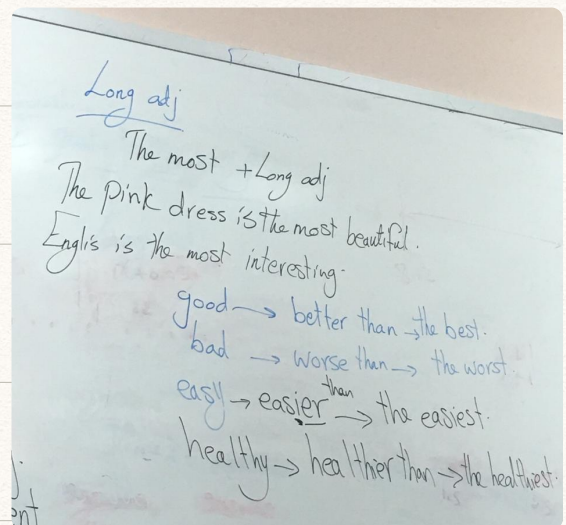 Long adj
The most + Long adj
The pink dress is the most beautiful.
Englis is the most interesting.
good → better than → the best.
bad → worse than → the worst.
easy → easier than → the easiest.
healthy → healthier than → the healthiest.
ent